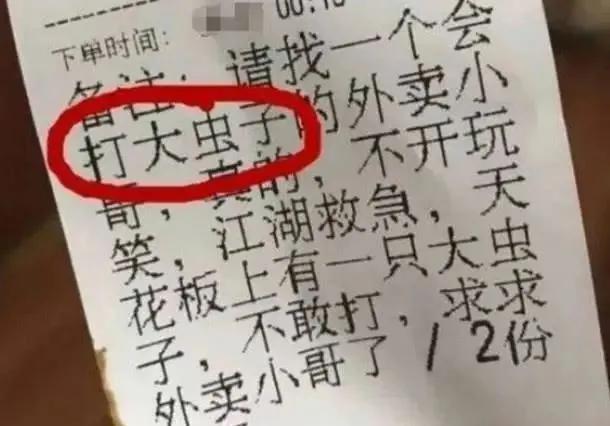 00:1
下单时间:
备注: 请找一个会
打大虫子的外卖小
哥,真的,不开玩
笑,江湖救急,天
花板上有一只大虫
子,不敢打,求求
外卖小哥了 / 2份